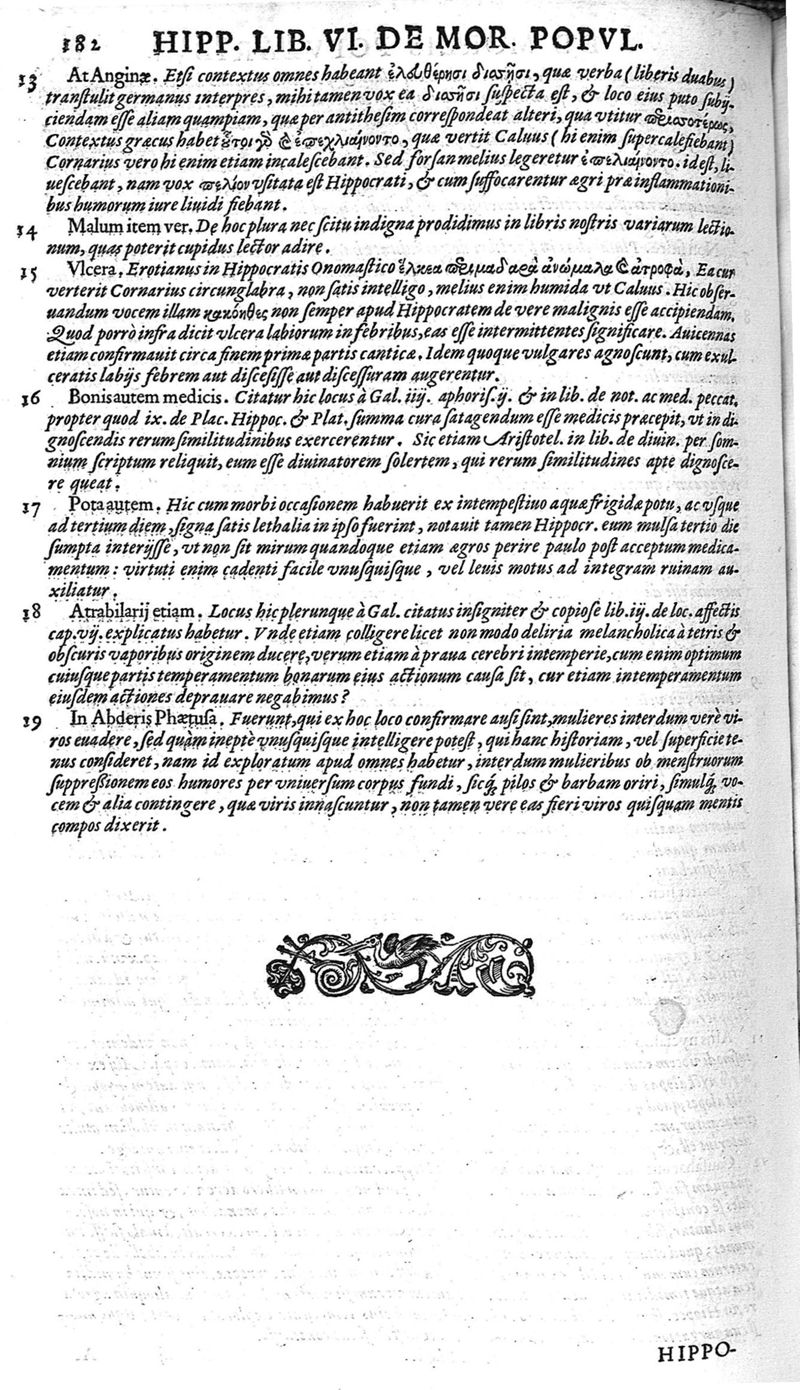 182 HIPP. LIB. VI. DE MOR. POPVL.
13 At Anginæ. Etſi contextus omnes habeant quæ verba (liberis duabus)
tranſtulit germanus interpres, mihi tamen vox ea ſuſpecta eſt, & loco eius puto ſubij-
ciendam eſſe aliam quampiam, quæ per antitheſim correſpondeat alteri, qua vtitur
Contextus græcus habet quæ vertit Caluus (hi enim ſupercalefiebant)
Cornarius vero hi enim etiam incaleſcebant. Sed forſan melius legeretur id eſt, li-
ueſcebant, nam vox vſitata eſt Hippocrati, & cum ſuffocarentur ægri præ inflammationi-
bus humorum iure liuidi fiebant.
14 Malum item ver. De hoc plura nec ſcitu indigna prodidimus in libris noſtris variarum lectio-
num, quas poterit cupidus lector adire.
15 Vlcera. Erotianus in Hippocratis Onomaſtico ἕλκεα ἀνώμαλα ἄτροφα, Ea cur
verterit Cornarius circunglabra, non ſatis intelligo, melius enim humida vt Caluus. Hic obſer-
uandum vocem illam κακόηθες non ſemper apud Hippocratem de vere malignis eſſe accipiendam,
Quod porrò infra dicit vlcera labiorum in febribus, eas eſſe intermittentes ſignificare. Auicennas
etiam confirmauit circa finem primæ partis cantica. Idem quoque vulgares agnoſcunt, cum exul-
ceratis labijs febrem aut diſceſiſſe aut diſceſſuram augerentur.
16 Bonis autem medicis. Citatur hic locus à Gal. iiij. aphoriſ. ij. & in lib. de not. ac med. peccat.
propter quod ix. de Plac. Hippoc. & Plat. ſumma cura ſatagendum eſſe medicis præcepit, vt in di-
gnoſcendis rerum ſimilitudinibus exercerentur. Sic etiam Ariſtotel. in lib. de diuin. per ſom-
nium ſcriptum reliquit, eum eſſe diuinatorem ſolertem, qui rerum ſimilitudines apte dignoſce-
re queat.
17 Pota autem. Hic cum morbi occaſionem habuerit ex intempeſtiuo aquæ frigidæ potu, ac vſque
ad tertium diem, ſigna ſatis lethalia in ipſo fuerint, notauit tamen Hippocr. eum mulſa tertio die
ſumpta interijſſe, vt non ſit mirum quandoque etiam ægros perire paulo poſt acceptum medica-
mentum: virtuti enim cadenti facile vnuſquiſque, vel leuis motus ad integram ruinam au-
xiliatur.
18 Atrabilarij etiam. Locus hic plerunque à Gal. citatus inſigniter & copioſe lib. iij. de loc. affectis
cap. vij. explicatus habetur. Vnde etiam colligere licet non modo deliria melancholica à tetris &
obſcuris vaporibus originem ducere, verum etiam à praua cerebri intemperie, cum enim optimum
cuiuſque partis temperamentum bonarum eius actionum cauſa ſit, cur etiam intemperamentum
eiuſdem actiones deprauare negabimus?
19 In Abderis Phætuſa. Fuerunt, qui ex hoc loco confirmare auſi ſint, mulieres interdum verè vi-
ros euadere, ſed quàm ineptè vnuſquiſque intelligere poteſt, qui hanc hiſtoriam, vel ſuperficie te-
nus conſideret, nam id exploratum apud omnes habetur, interdum mulieribus ob menſtruorum
ſuppreſſionem eos humores per vniuerſum corpus fundi, ſicq́; pilos & barbam oriri, ſimulq́; vo-
cem & alia contingere, quæ viris innaſcuntur, non tamen vere eas fieri viros quiſquam mentis
compos dixerit.
HIPPO-